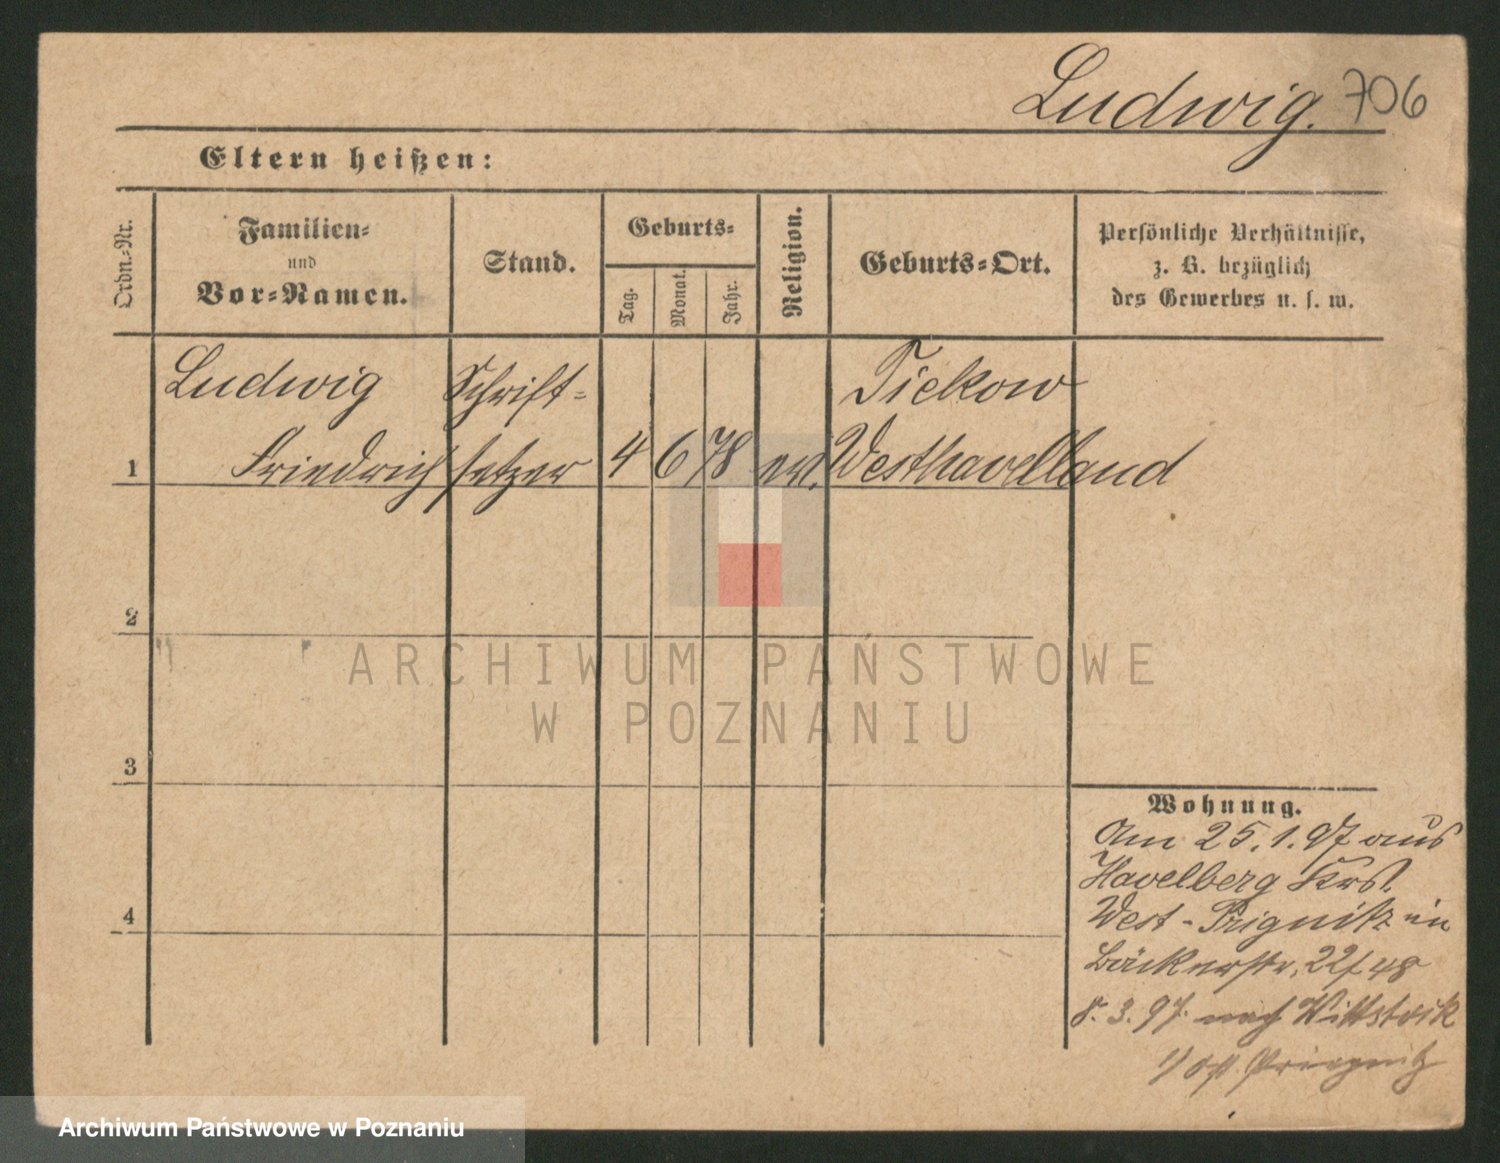 Ludwig. 706
Eltern heißen:
Ordn.-Nr.
Familien-
und
Vor-Namen.
Stand.
Geburts-
Tag.
Monat.
Jahr.
Religion.
Geburts-Ort.
Persönliche Verhältnisse,
z. B. bezüglich
des Gewerbes u. s. w.
Ludwig Schrift- Tiekow
1 Friedrich setzer 4 6 78 ev. Westhavelland
2
ARCHIWUM PAŃSTWOWE
W POZNANIU
3
4
Wohnung.
Am 25.1.97 aus
Havelberg Krs.
West-Prignitz in
Bäckerstr. 22/48
8.3.97. nach Wittstock
Archiwum Państwowe w Poznaniu